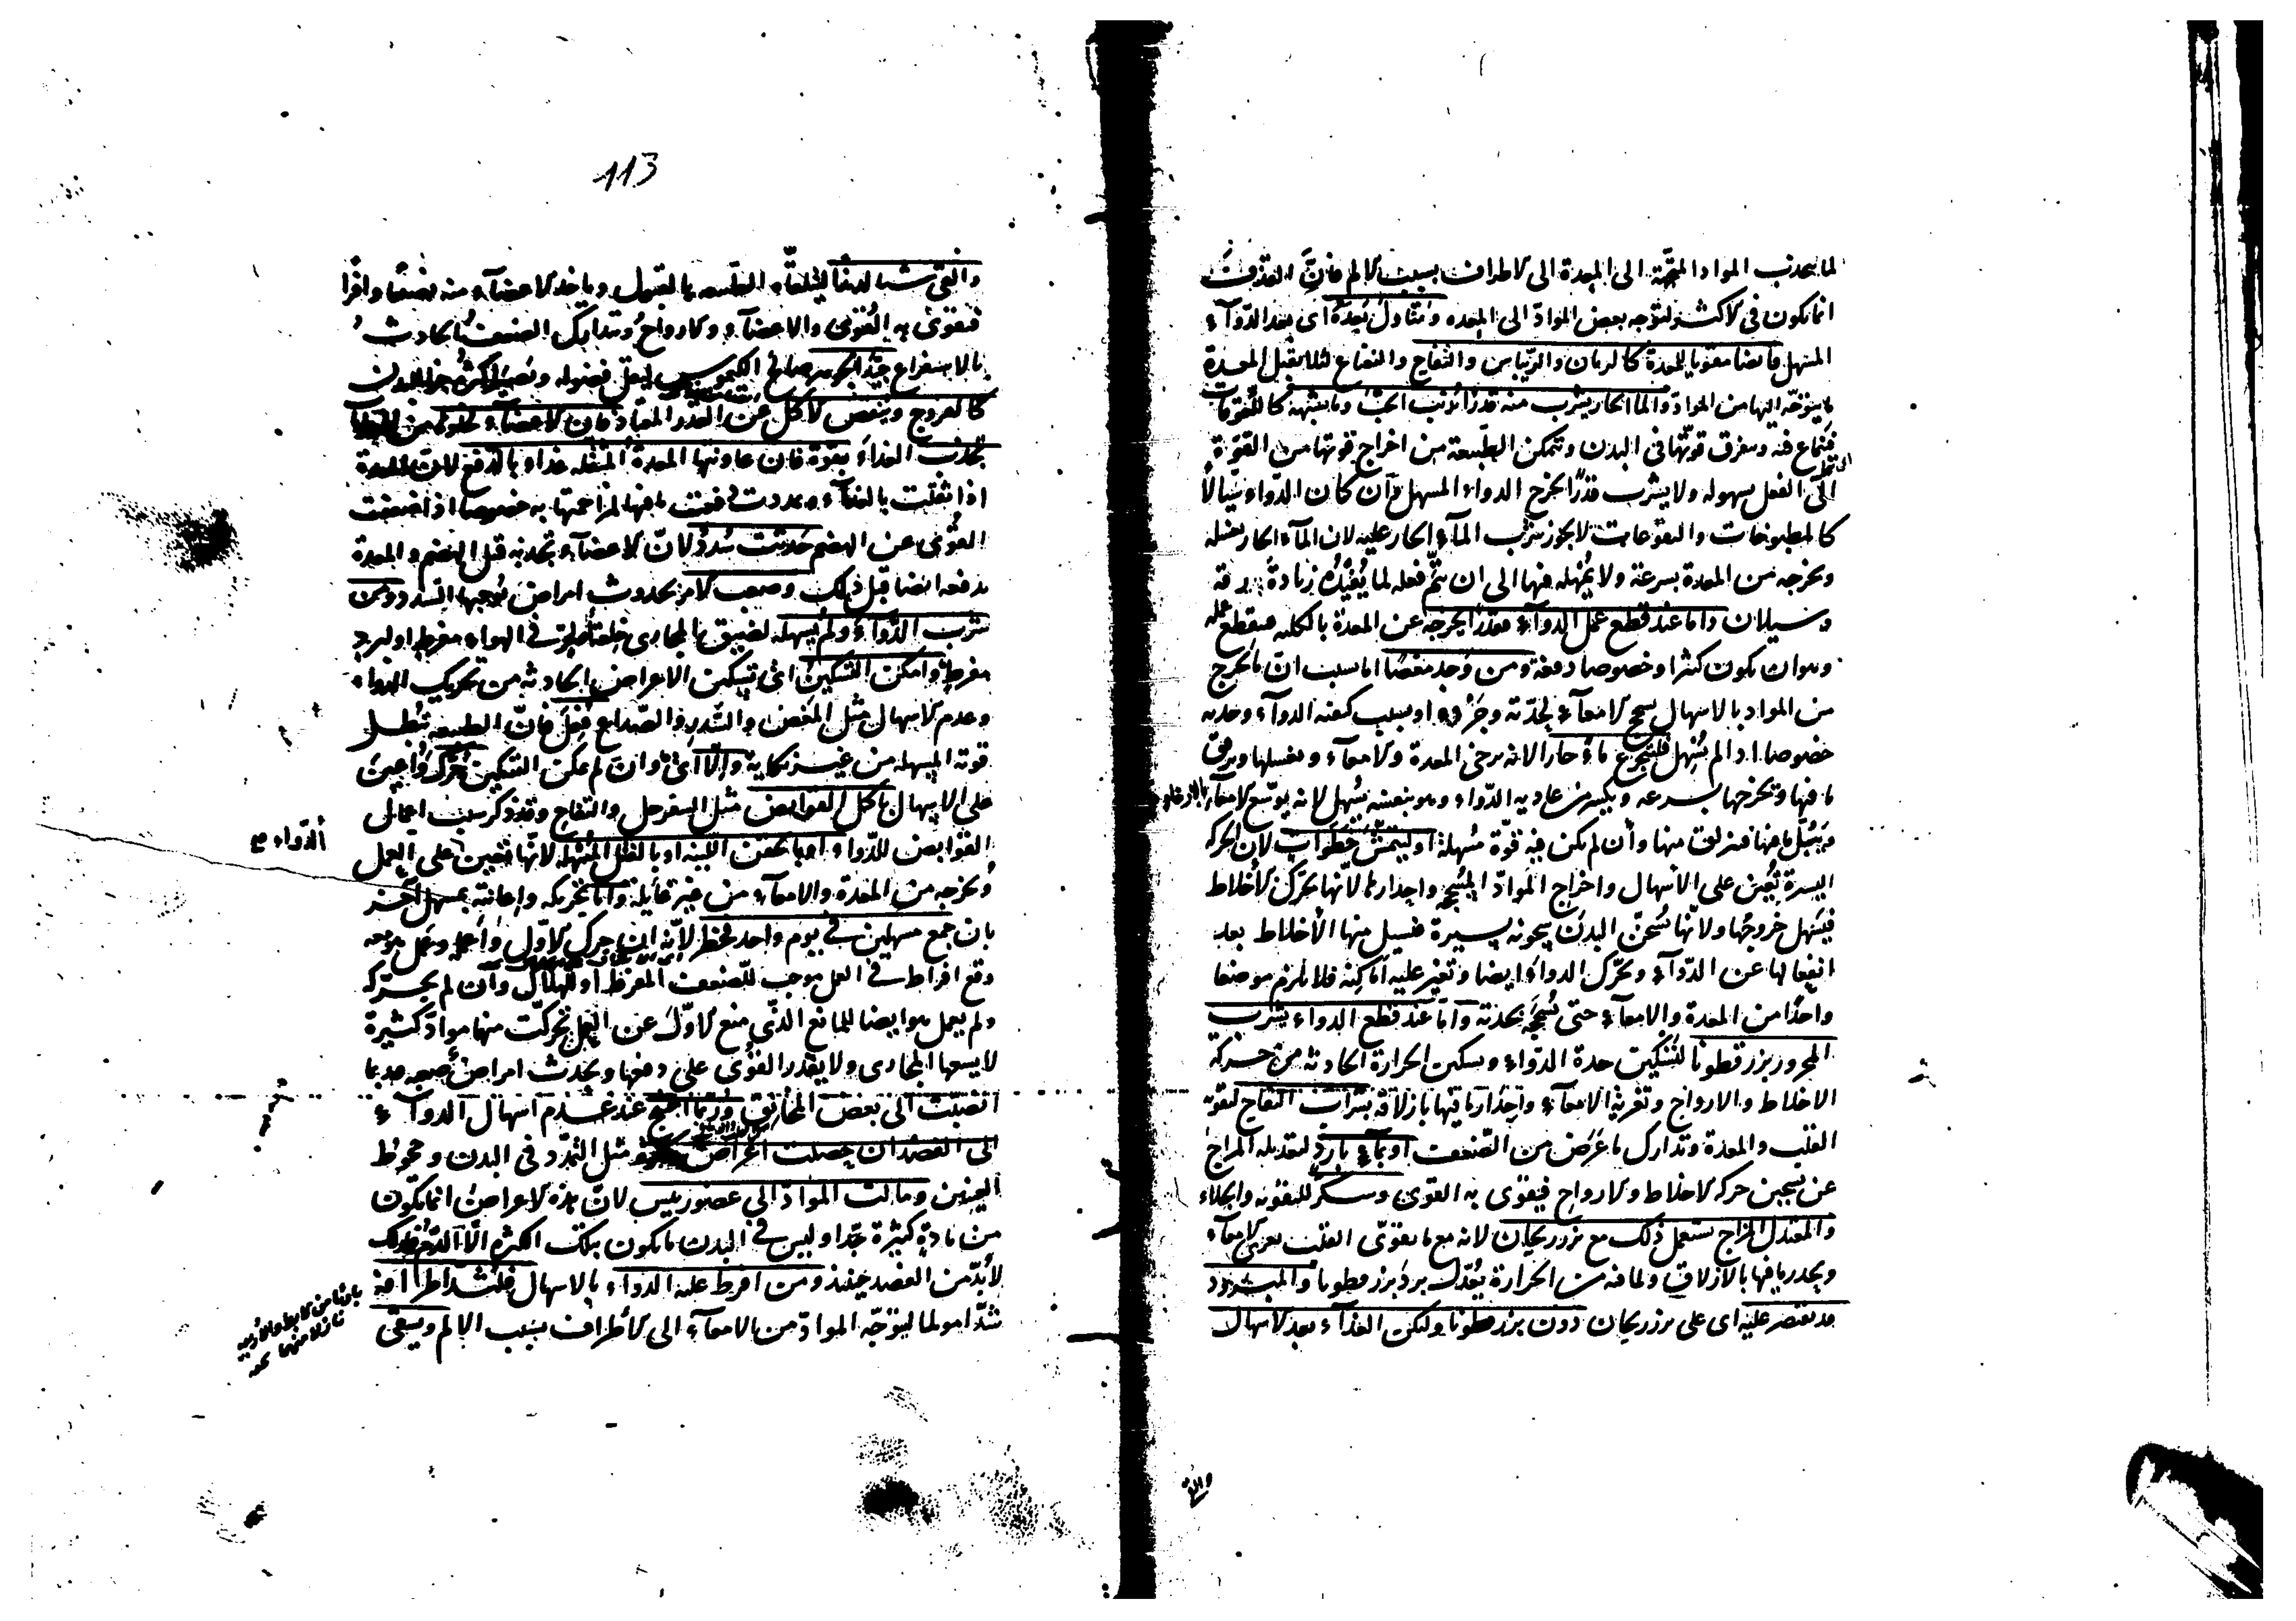 لما يجذب المواد المتجهة الى المعدة الى الاطراف بسبب الالم فان القذف
انما يكون فى الاكثر لتوجه بعض المواد الى المعده وتناول بعده اى بعد الدوآء
المسهل قابضا مقويا للمعدة كالرمان والريباس والتفاح والنعناع لئلا يقبل المعدة
ما يتوجه اليها من المواد والما الحار يشرب منه قدرا يذيب الحب وما يشبهه كالسفوفات
فينماع فيه ويتفرق قوتها فى البدن وتتمكن الطبيعة من اخراج قوتها من القوة
الى الفعل بسهوله ولا يشرب قدرا يخرج الدواء المسهل وان كان الدواء سيالا
كالمطبوخات والنقوعات لا يجوز شرب المآء الحار عليه لان المآء الحار يغسله
ويخرجه من المعدة بسرعة ولا يمهله فيها الى ان يتم فعله لما يفيده زيادة رقة
وسيلان واما عند قطع عمل الدوآء فقدرا يخرجه عن المعدة بالكليه فيقطع عمله
وهو ان يكون كثيرا وخصوصا دفعة ومن وجد مغصا اما بسبب ان ما يخرج
من المواد بالاسهال يسحج الامعآء لحدته وحرافته او بسبب كيفية الدوآء وحدته
خصوصا اذا لم يسهل فليتجرع مآء حارا لانه يرخى المعدة والامعآء ويغسلها ويزلق
ما فيها ويخرجها بسرعه ويكسر من عادية الدواء وهو بنفسه يسهل لانه يوسع الامعآء
ويبل ما فيها فينزلق منها وان لم يكن فيه قوة مسهلة او ليتمش خطوات لان الحركه
اليسيرة تعين على الاسهال واخراج المواد واحدارها لانها تحرك الاخلاط
فيسهل خروجها ولانها تسخن البدن سخونه يسيرة فيسيل منها الاخلاط بعد
انفعالها عن الدوآء وتحرك الدواء ايضا وتغير عليه اماكنه فلا يلزم موضعا
واحدا من المعدة والامعآء حتى يسحجه بحدته واما عند قطع الدواء يشرب
المحرور بزر قطونا لتسكين حدة الدواء وتسكين الحرارة الحادثه من حركة
الاخلاط والارواح وتغرية الامعآء واحدار ما فيها بازلاقه بشراب التفاح لتقويه
القلب والمعدة وتدارك ما عرض من الضعف او بمآء بارد لتعديله المزاج
عن تسخين حركه الاخلاط والارواح فيقوى به القوى وسكر للتقويه والجلاء
والمعتدل المزاج يستعمل ذلك مع بزر ريحان لانه مع ما يقوى القلب يغرى الامعآء
ويحدر ما فيها بالازلاق ولما فيه من الحرارة يعدل برد بزر قطونا والمبرود
قد يقتصر عليه اى على بزر ريحان دون بزر قطونا وليكن الغذآء بعد الاسهال
113
فيقوى به القوى والاعضآء والارواح ويتدارك الضعف الحادث
بالاستفراغ جيد الجوهر صالح الكيموس ليقل فضوله
كالفروج وينقص الاكل عن القدر المعتاد فان الاعضآء لخلوها من
تجذب الغذاء بقوة فان عاونتها المعدة المثقله غداو بالدفع لان المعدة
اذا ثقلت بالغذآء دفعت ما فيها لمزاحمتها به خصوصا اذا ضعفت
القوى عن الهضم حدثت سدد لان الاعضآء تجذبه قبل الهضم والمعدة
تدفعه ايضا قبل ذلك وصعب الامر بحدوث امراض توجبها السدد ومن
شرب الدواء ولم يسهله لضيق المجارى خلقة او فى الهواء مفرط او لبرد
مفرط وامكن التسكين اى تسكين الاعراض الحادثه من تحريك الدواء
وعدم الاسهال مثل المغص والسدر والصداع فعل فان الطبيعه تبطل
قوته المسهله من غير نكاية والا اى وان لم يمكن التسكين حرك واعين
على الاسهال باكل القوابض مثل السفرجل والتفاح وقد ذكر سبب اعمال
القوابض للدواء او بالحقن اللينه او بالفتل المسهله لانها تعين على العمل
الدواء صح
وتخرجه من المعدة والامعآء من غير غايلة واما تحريكه واعانته بمسهل آخر
بان جمع مسهلين فى يوم واحد فخطر لانه ان حرك الاول واعمله وعمل هو معه
وقع افراط فى العمل موجب للضعف المفرط او الهلاك وان لم يحركه
ولم يعمل هو ايضا للمانع الذى منع الاول عن العمل تحركت منها مواد كثيرة
لا يسعها المجارى ولا يقدر القوى على دفعها ويحدث امراض صعبه وربما
انصبت الى بعض المخانق وربما احتيج عند عدم اسهال الدوآء
الى الفصد ان حصلت اعراض مثل التمدد فى البدن وجحوظ
العينين ومالت المواد الى عضو رئيس لان هذه الاعراض انما يكون
من مادة كثيرة جدا وليس فى البدن ما يكون بتلك الكثرة الا الدم فلذلك
لا بد من الفصد حينئذ ومن افرط عليه الدواء بالاسهال فليشد اطرافه
شدا مولما ليتوجه المواد من الامعآء الى الاطراف بسبب الالم ويسقى